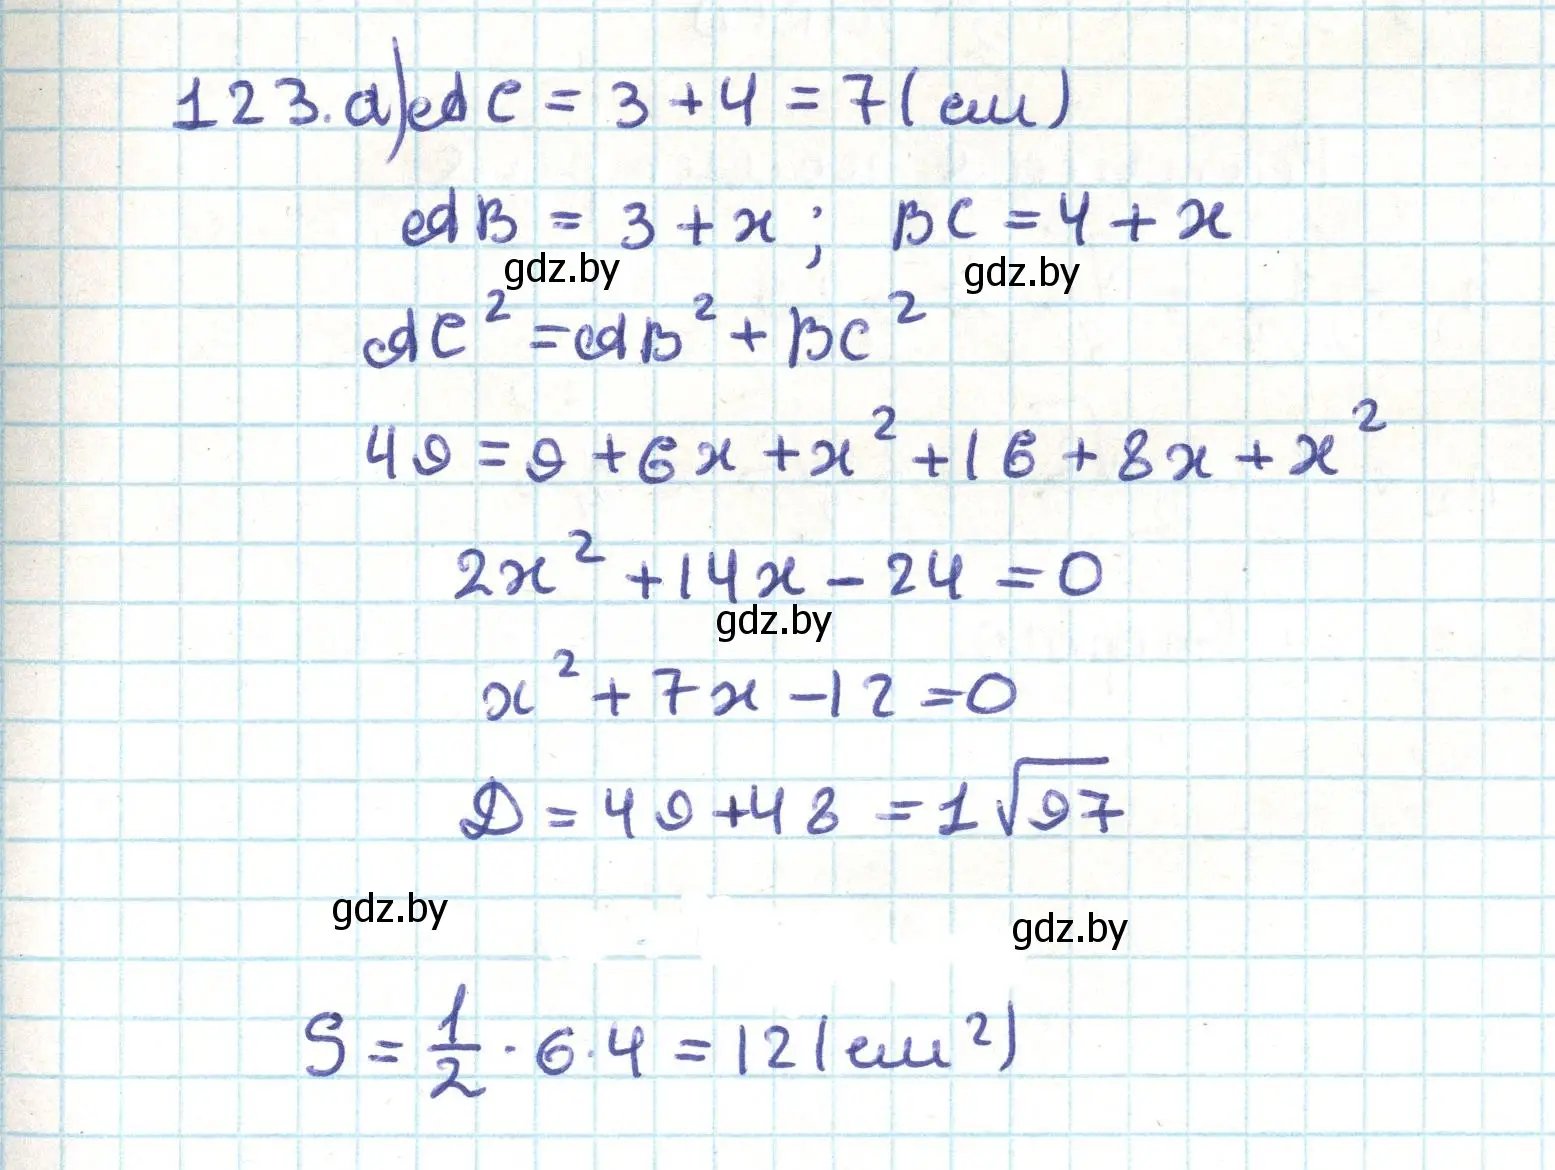 123. а) AC = 3 + 4 = 7 (см)
AB = 3 + x ; BC = 4 + x
gdz.by gdz.by
AC² = AB² + BC²
49 = 9 + 6x + x² + 16 + 8x + x²
2x² + 14x - 24 = 0
gdz.by
x² + 7x - 12 = 0
D = 49 + 48 = 1√97
gdz.by gdz.by
S = 1/2 · 6 · 4 = 12 (см²)